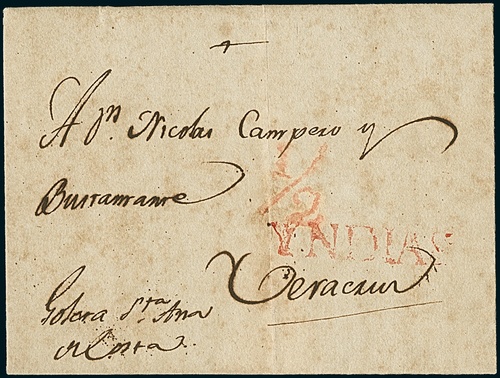 A Dn. Nicolas Campero y
Bustamante
1/2
YNDIAS
Veracruz
Goleta Sta. Ana